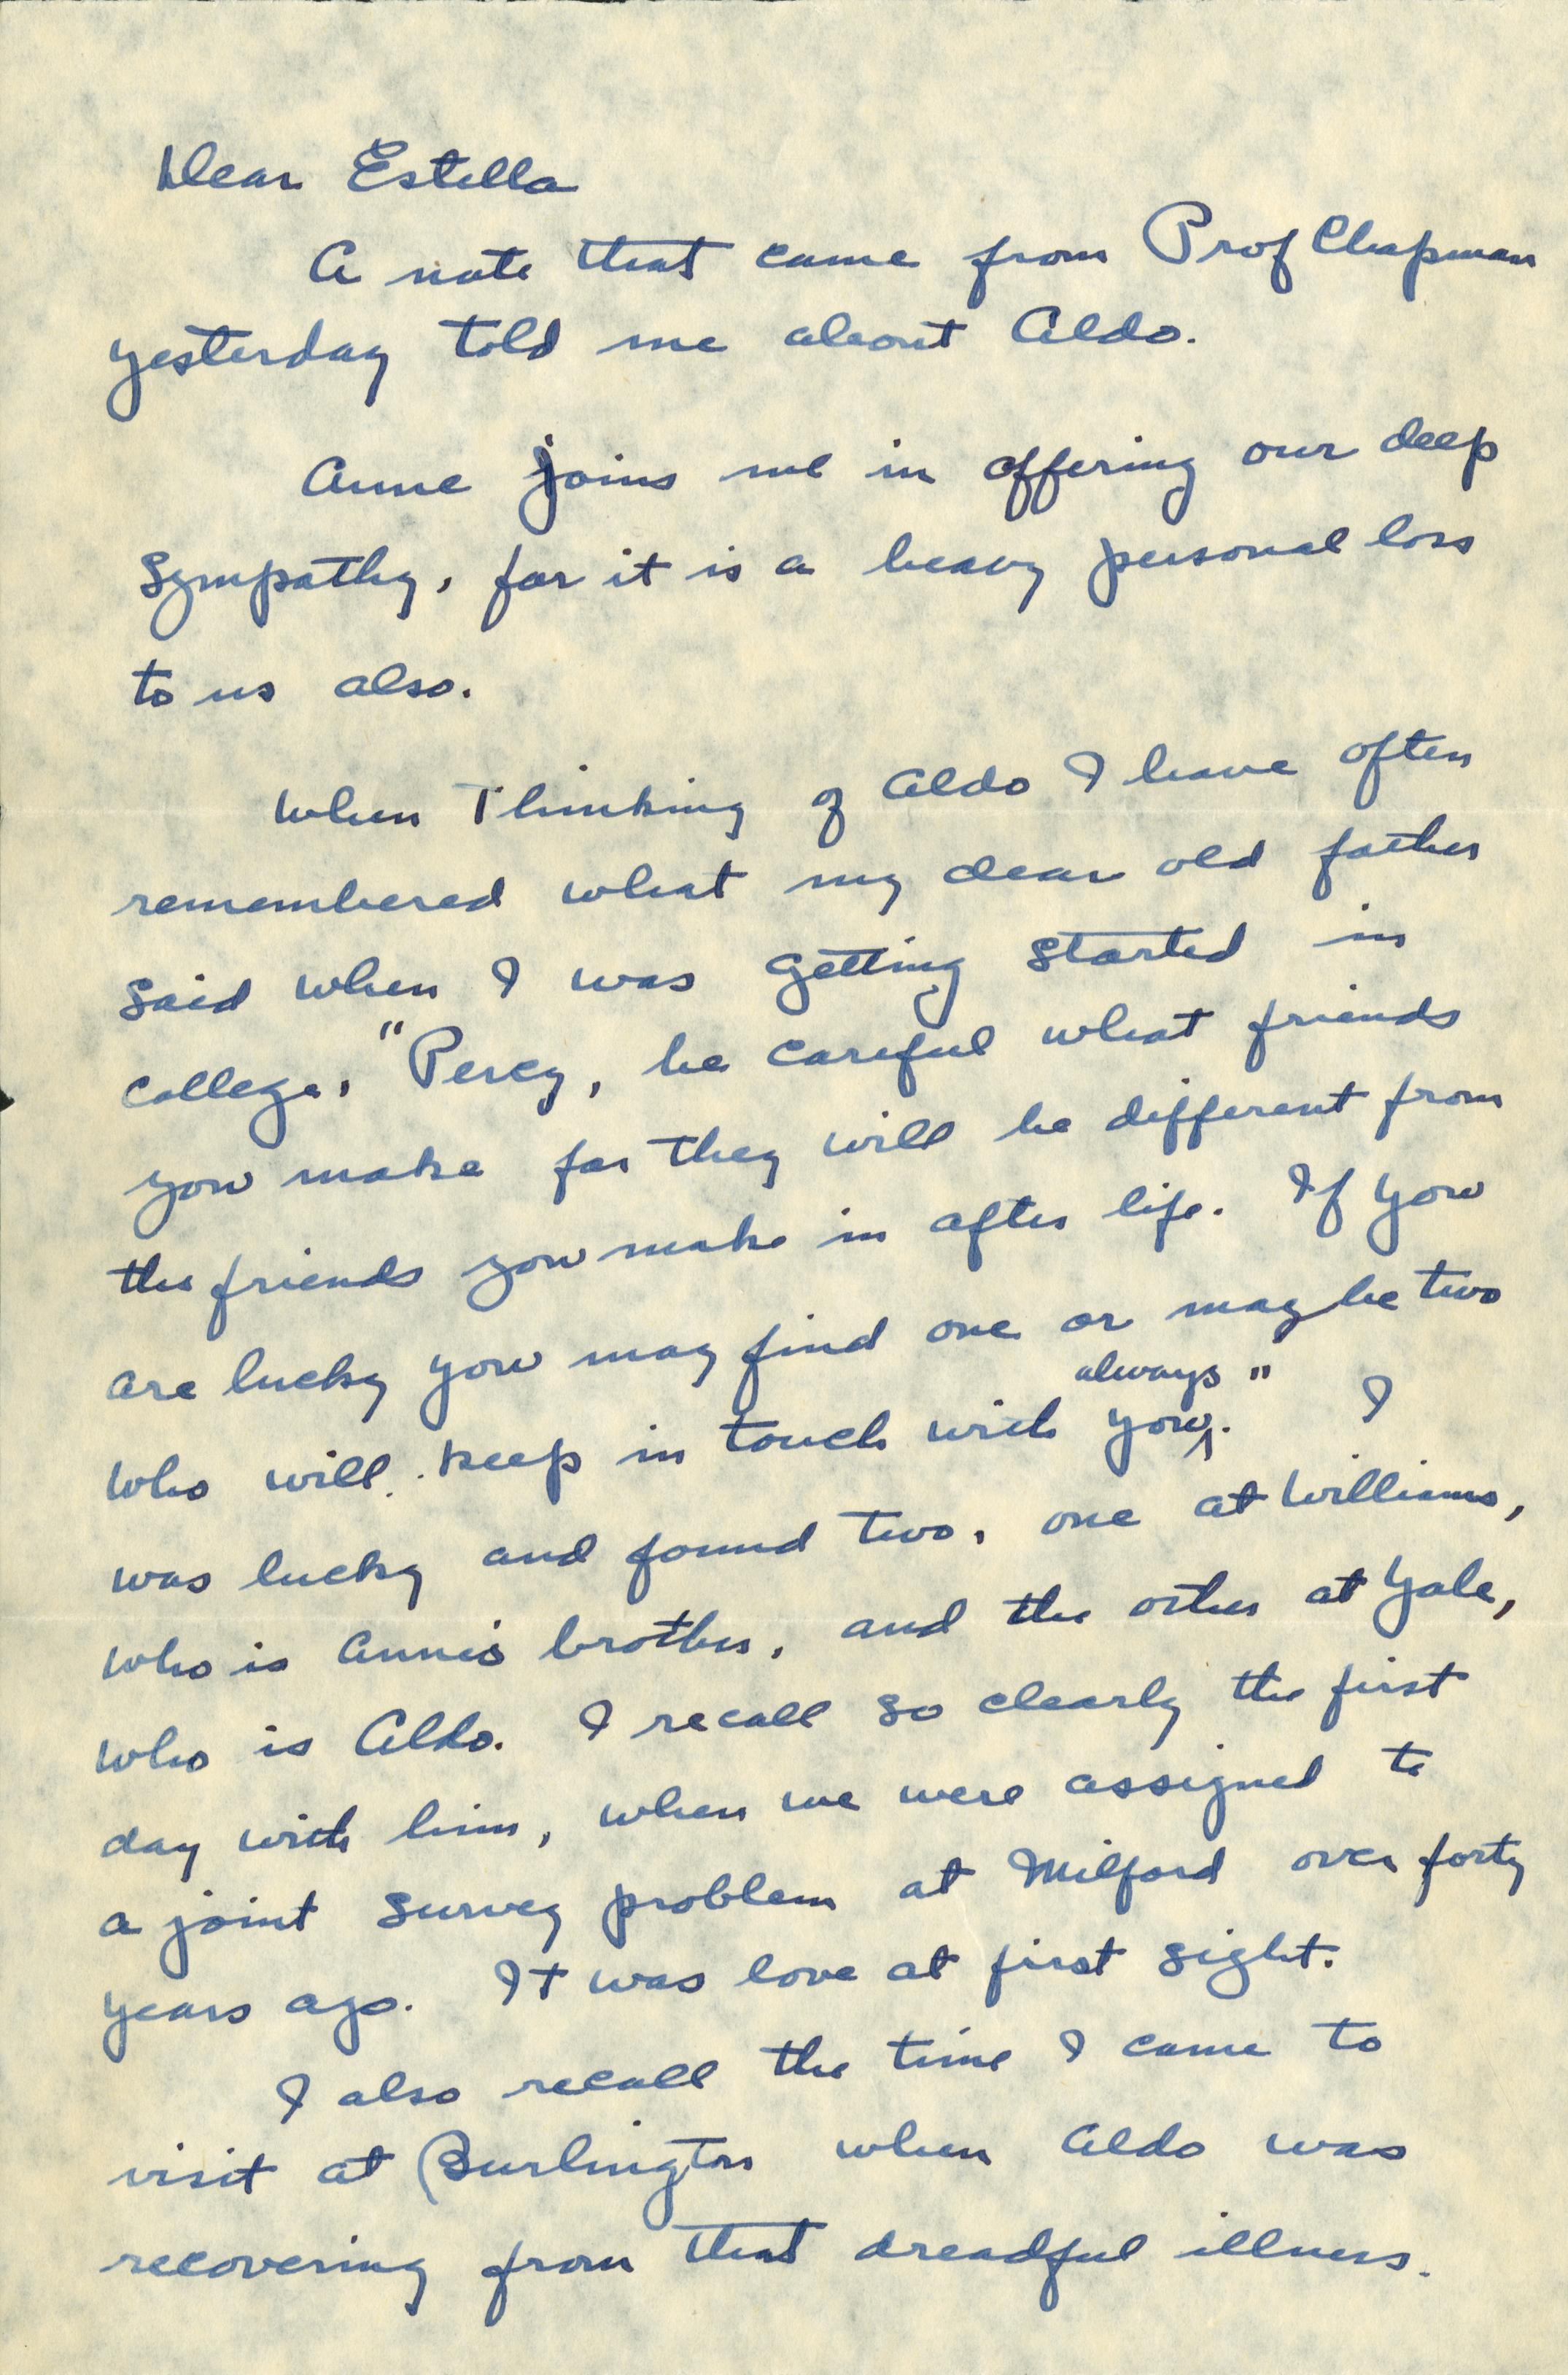 Dear Estella
A note that came from Prof Chapman
yesterday told me about Aldo.
Anne joins me in offering our deep
sympathy, for it is a heavy personal loss
to us also.
When Thinking of Aldo I have often
remembered what my dear old father
said when I was getting started in
college, "Percy, be careful what friends
you make for they will be different from
the friends you make in after life. If you
are lucky you may find one or maybe two
always "
who will keep in touch with you. I
was lucky and found two, one at Williams,
who is Anne's brother, and the other at Yale,
who is Aldo. I recall so clearly the first
day with him, when we were assigned to
a joint survey problem at Milford over forty
years ago. It was love at first sight.
I also recall the time I came to
visit at Burlington when Aldo was
recovering from that dreadful illness.